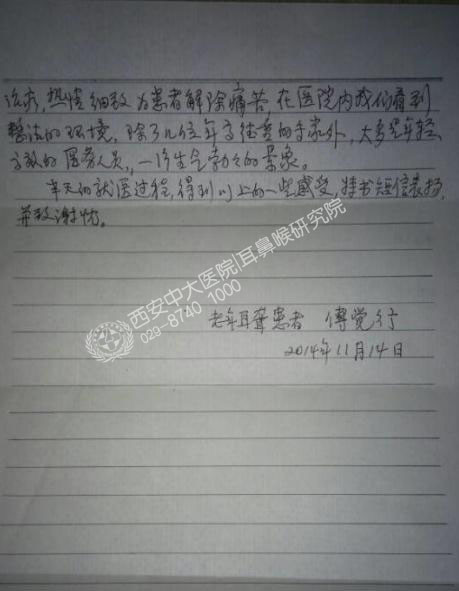 热情细致为患者解除痛苦 在医院内我们看到
整洁的环境，除了几位年高德重的专家外，大多是年轻
有效的医务人员，一片生气勃々的景象。
半天的就医过程，得到以上的一些感受，特书短信表扬，
并致谢忱。
西安中大医院|耳鼻喉研究院
029-8740 1000
老年耳聋患者 傅觉行
2014年11月14日